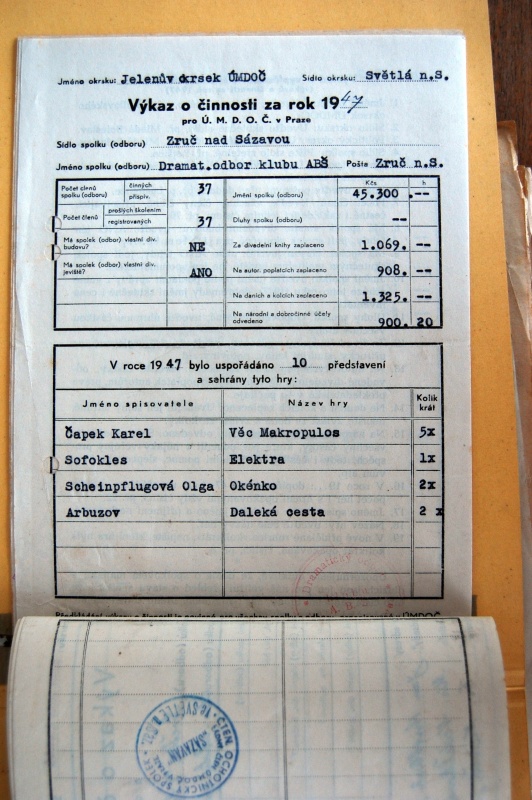 Jméno okrsku: Jelenův okrsek ÚMDOČ Sídlo okrsku: Světlá n.S.
Výkaz o činnosti za rok 1947
pro Ú. M. D. O. Č. v Praze
Sídlo spolku (odboru) Zruč nad Sázavou
Jméno spolku (odboru) Dramat.odbor klubu ABS Pošta Zruč n.S.
Počet členů spolku (odboru) činných 37
přispív.
Počet členů prošlých školením
registrovaných 37
Má spolek (odbor) vlastní div. budovu? NE
Má spolek (odbor) vlastní div. jeviště? ANO
Kčs h
Jmění spolku (odboru) 45.300 .--
Dluhy spolku (odboru) --
Za divadelní knihy zaplaceno 1.069. --
Na autor. poplatcích zaplaceno 908. --
Na daních a kolcích zaplaceno 1.325. --
Na národní a dobročinné účely odvedeno 900. 20
V roce 1947 bylo uspořádáno 10 představení
a sehrány tyto hry:
Jméno spisovatele Název hry Kolik krát
Čapek Karel Věc Makropulos 5x
Sofokles Elektra 1x
Scheinpflugová Olga Okénko 2x
Arbuzov Daleká cesta 2 x
Dramatický
ČTEN. OCHOTNICKÝ SPOLEK
"SÁZAVAN"
VE SVĚTLÉ n. SÁZ.